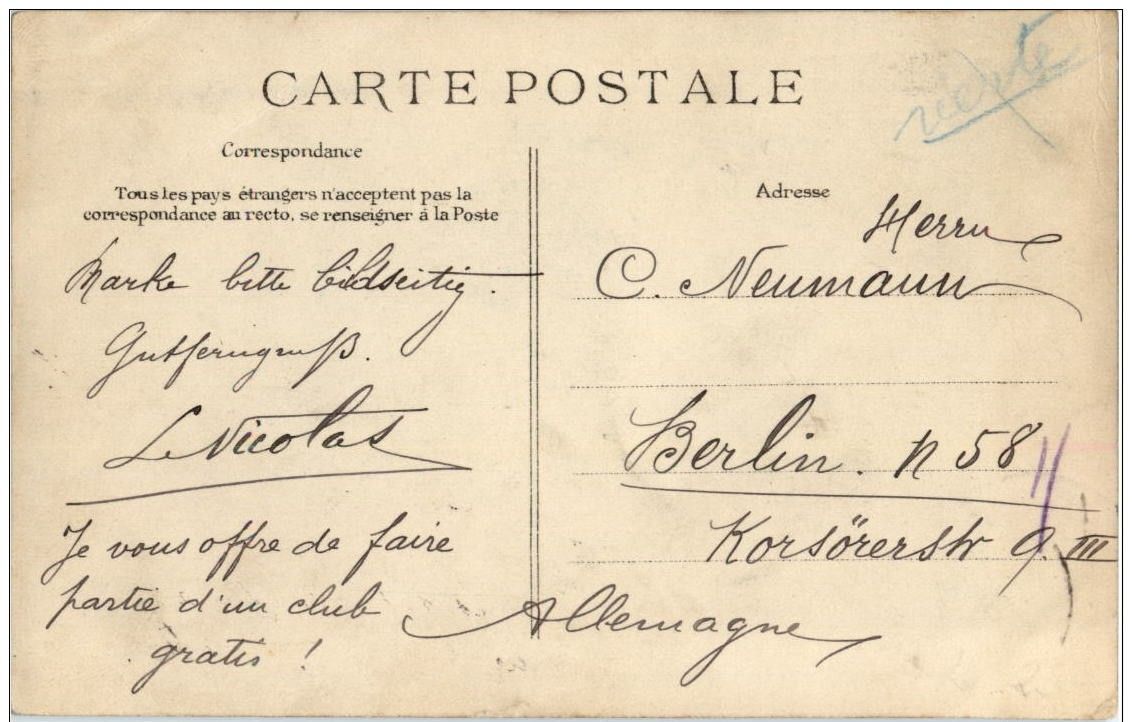 CARTE POSTALE
Correspondance
Tous les pays étrangers n'acceptent pas la
correspondance au recto, se renseigner à la Poste
Marke bitte bildseitig.
Gutferngruß.
L Nicolas
Je vous offre de faire
partie d'un club
gratis !
Adresse
Herrn
C. Neumann
Berlin. N 58
Korsörerstr 9. III
Allemagne